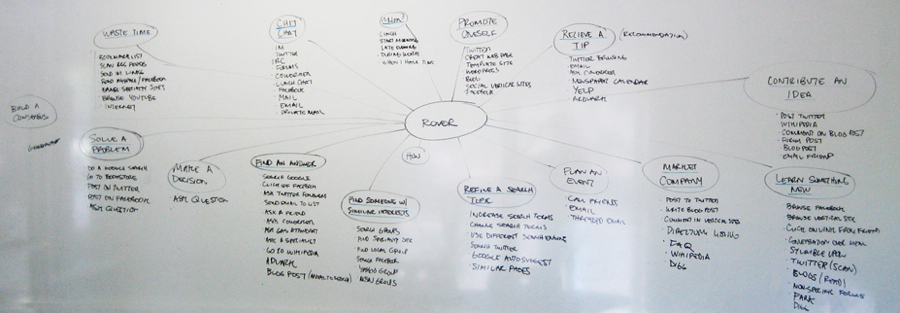 WASTE TIME
SCAN RSS FEEDS
BROWSE YOUTUBE
INTERNET
CHIT CHAT
IM
TWITTER
IRC
FORUMS
COWORKER
LUNCH CHAT
FACEBOOK
MAIL
EMAIL
PRIVATE MAIL
WHEN?
LUNCH
START MORNING
LATE EVENING
DURING WORK
WHEN I HAVE TIME
PROMOTE ONESELF
TWITTER
CREATE WEB PAGE
TEMPLATE SITE
WORDPRESS
BLOG
SOCIAL VERTICAL SITES
FACEBOOK
RECIEVE A TIP
(RECOMMENDATION)
TWITTER
EMAIL
ASK COWORKER
NEWSPAPER CALENDAR
YELP
AARDVARK
CONTRIBUTE AN IDEA
POST TWITTER
WIKIPEDIA
COMMENT ON BLOG POST
FORUM POST
BLOG POST
EMAIL FRIEND
BUILD A CONSENSUS
ROVER
HOW
SOLVE A PROBLEM
DO A GOOGLE SEARCH
GO TO BOOKSTORE
POST ON TWITTER
POST ON FACEBOOK
ASK QUESTION
MAKE A DECISION
ASK QUESTION
FIND AN ANSWER
SEARCH GOOGLE
ASK TWITTER FOLLOWERS
SEND EMAIL TO LIST
ASK A FRIEND
ASK COWORKER
ASK GAS ATTENDANT
ASK A SPECIALIST
GO TO WIKIPEDIA
AARDVARK
BLOG POST
FIND SOMEONE W/ SIMILIAR INTERESTS
SEARCH GROUPS
FIND SPECIALTY SITE
FIND LOCAL GROUP
SEARCH FACEBOOK
YAHOO GROUP
MSN GROUPS
REFINE A SEARCH TOPIC
INCREASE SEARCH TERMS
CHANGE SEARCH TERMS
USE DIFFERENT SEARCH ENGINES
SEARCH TWITTER
GOOGLE AUTOSUGGEST
SIMILAR PAGES
PLAN AN EVENT
CALL FRIENDS
EMAIL
THREADED EMAIL
MARKET COMPANY
POST TO TWITTER
WRITE BLOG POST
COMMENT IN VERTICAL SITES
DIRECTORY LISTING
FAQ
WIKIPEDIA
DIGG
LEARN SOMETHING NEW
BROWSE FACEBOOK
BROWSE VERTICAL SITE
CLICK ON LINK FROM FRIEND
CONVERSATION OVER MEAL
STUMBLE UPON
TWITTER (SCAN)
BLOGS (READ)
NON-SPECIFIC FORUMS
FARK
DIGG